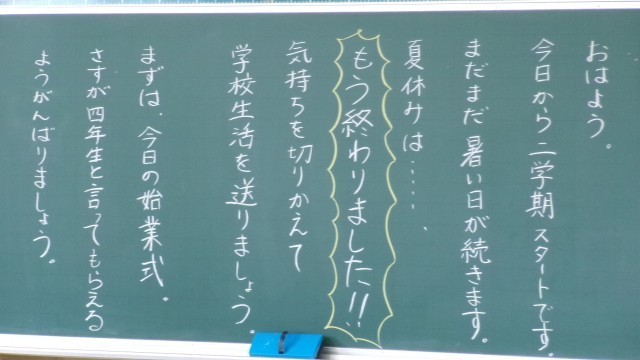 おはよう。
今日から二学期スタートです。
まだまだ暑い日が続きます。
夏休みは・・・・・、
もう終わりました!!
気持ちを切りかえて
学校生活を送りましょう。
まずは、今日の始業式。
さすが四年生と言ってもらえる
ようがんばりましょう。